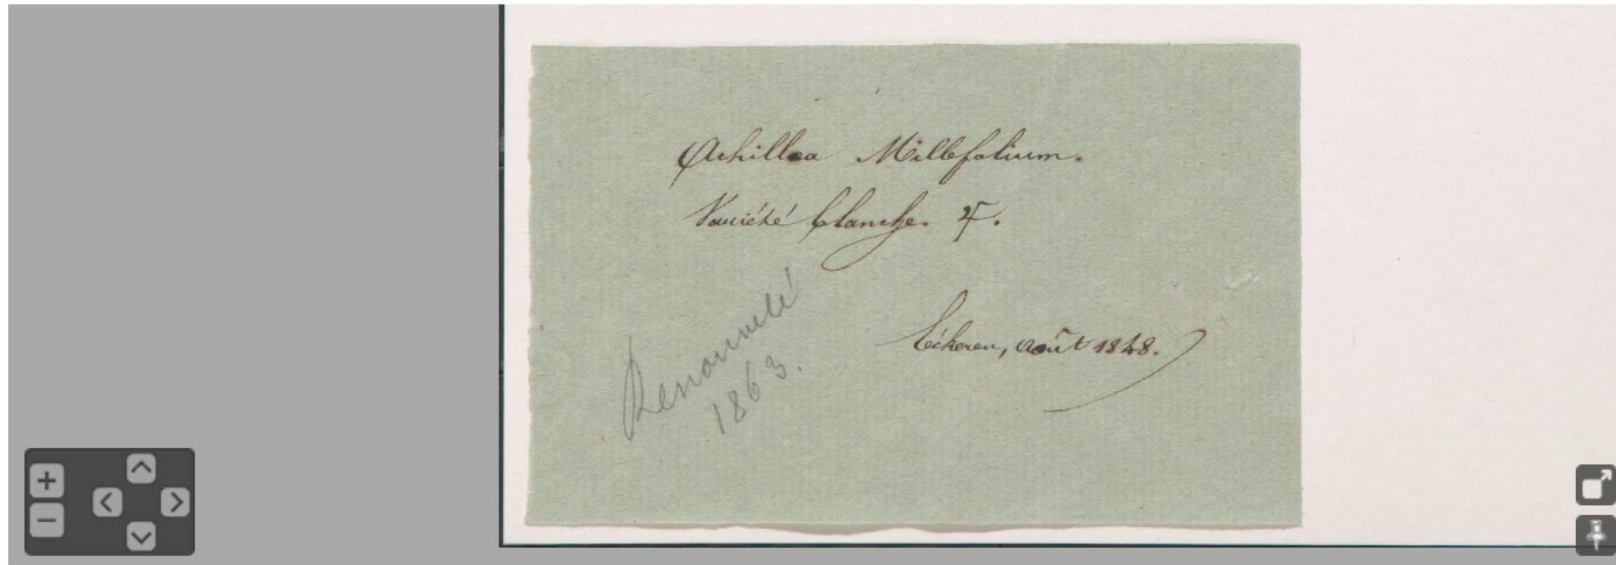 Achillea Millefolium.
Variété blanche. ♃.
Eckeren, août 1848.
Renouvelé
1863.